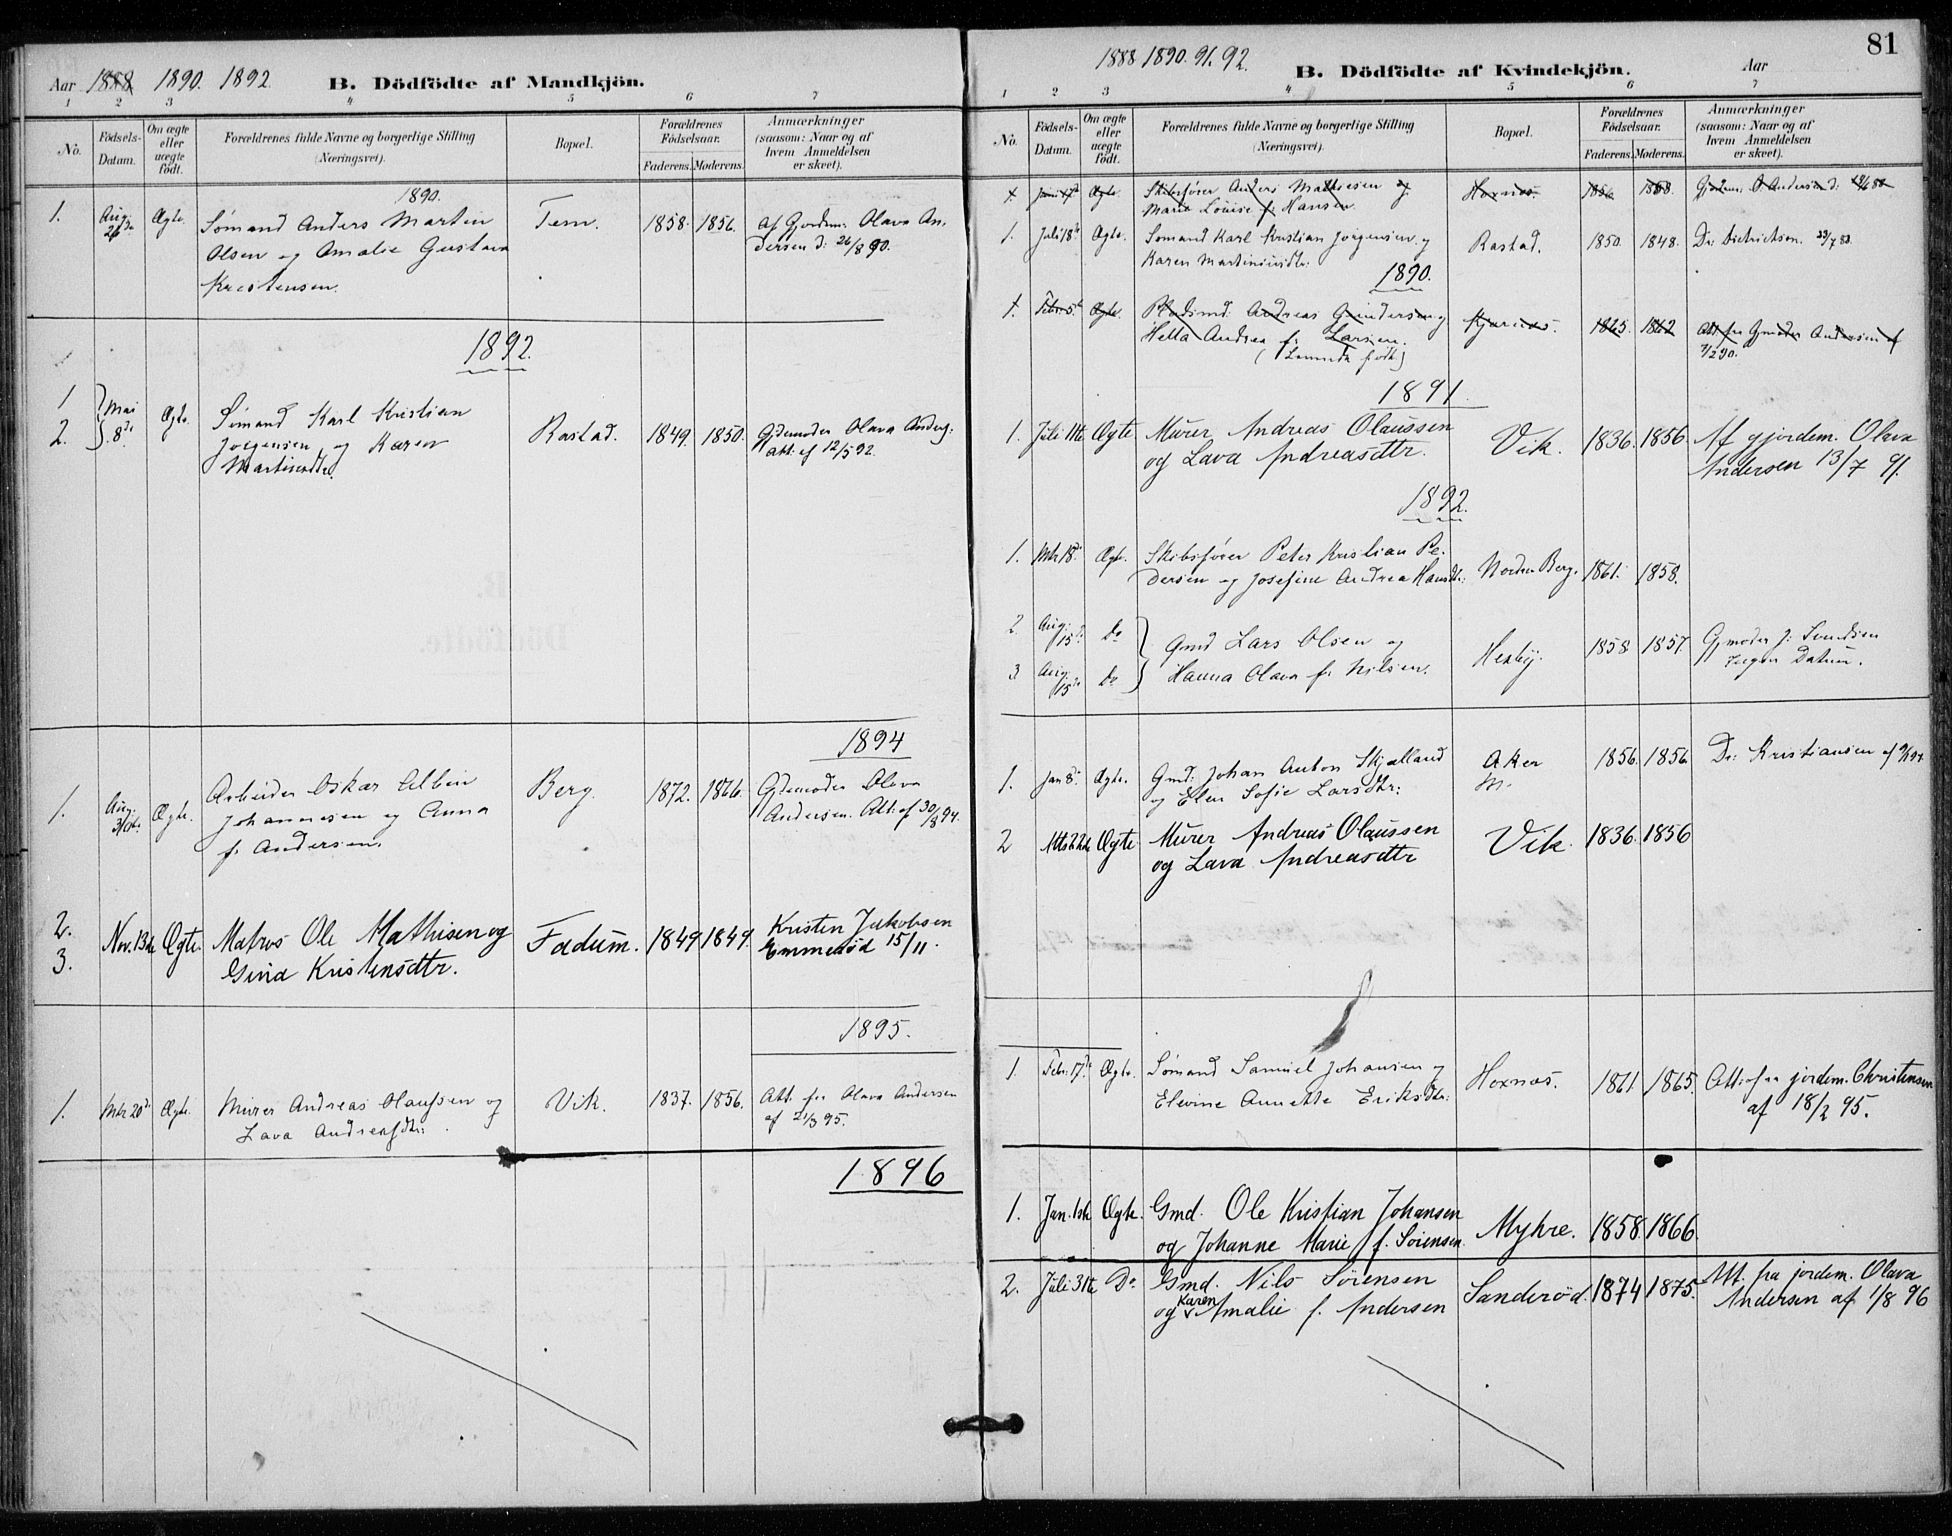 Aar 1888 1890. 1892. B. Dödfödte af Mandkjön.
1 2 3 4 5 6 7
No.
Födsels-
Datum.
Om ægte
eller
uægte
födt.
Forældrenes fulde Navne og borgerlige Stilling
(Næringsvei).
Bopæl.
Forældrenes
Födselsaar.
Faderens. Moderens.
Anmærkninger
(saasom: Naar og af
hvem Anmeldelsen
er skeet).
1890.
1. Aug. Ægte. Sømand Anders Martin Tem. 1858. 1856. Af Gjordem: Olava An-
Olsen og Amalie Gustava dersen d: 26/8 90.
Kristensen.
1892.
1 Mai Ægte. Sømand Karl Kristian Rastad. 1849. 1850. Gjdemoder Olava Anders:
2. 8de Jørgensen og Karen att: af 12/5 92.
Martinsdtr.
1894
1. Aug. 31te: Ægte. Arbeider Oskar Albin Berg. 1872. 1866. Gjdemoder Olava
Johannesen og Anna Andersen. Att: af 30/8 94.
f. Andersen.
2. Nov. 13de Ægte. Matros Ole Mathisen og Fadum. 1849 1849. Kristen Jakobsen
3. Gina Kristensdtr. Emmerød 15/11.
1895.
1. Mts 20de Ægte. Murer Andreas Olaussen og Vik. 1837. 1856. Att. fra Olava Andersen
Lava Andreasdtr: af 21/3 95.
1896
81
1888 1890. 91. 92. B. Dödfödte af Kvindekjön. Aar
1 2 3 4 5 6 7
No.
Födsels-
Datum.
Om ægte
eller
uægte
födt.
Forældrenes fulde Navne og borgerlige Stilling
(Næringsvei).
Bopæl.
Forældrenes
Födselsaar.
Faderens. Moderens.
Anmærkninger
(saasom: Naar og af
hvem Anmeldelsen
er skeet).
1 Ægte. Skibsfører Anders Mathiesen og Hoxnæs. 1858.
Marie Louise f: Hansen.
1. Juli 18de Ægte. Sømand Karl Kristian Jørgensen og Rastad. 1850. 1848. Dr: Dietrichson.
Karen Martiniusdtr:
1890.
1. Febr. 5te Ægte. Pladsmd: Andreas Gundersen og Kjærnæs. 1865. 1862 Att fra Gjmoder Andersen af
Hella Andrea f: Larsen. 7/2 90.
1891.
1. Juli 11te Ægte Murer Andreas Olaussen Vik. 1836. 1856. Af gjordem. Olava
og Lava Andreasdtr. Andersen 13/7 91.
1892.
1. Mts 18de Ægte. Skibsfører Peter Kristian Pe- Nordre Berg. 1861. 1858.
dersen og Josefine Andrea Hansdtr:
2. Aug: 15de Do Gmd Lars Olsen og Hesby. 1858 1857. Gjmoder J: Svendsen
3. Aug. 15de Do Hanna Olava f: Nilsen. Datum.
1. Jan 8de Ægte. Gmd: Johan Anton Skjælland Aker 1856. 1856. Dr: Kristiansen af
og Elen Sofie Larsdtr: M.
2 Mts 22de Ægte Murer Andreas Olaussen Vik. 1836. 1856
og Lava Andreasdtr
1. Febr: 17de Ægte. Sømand Samuel Johansen og Hoxnæs. 1861. 1865. Att: fra jordem. Christensen
Elevine Annette Eriksdtr: af 18/2 95.
1. Jan. 1ste Ægte. Gmd. Ole Kristian Johansen Myhre. 1858. 1866.
og Johanne Marie f. Sörensen.
2. Juli 31te Do. Gmd. Nils Sörensen Sanderöd. 1874 1875. Att. fra jordem. Olava
og Karen Amalie f. Andersen Andersen af 1/8 96